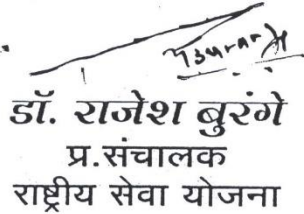 डॉ. राजेश बुरंगे
प्र.संचालक
राष्ट्रीय सेवा योजना